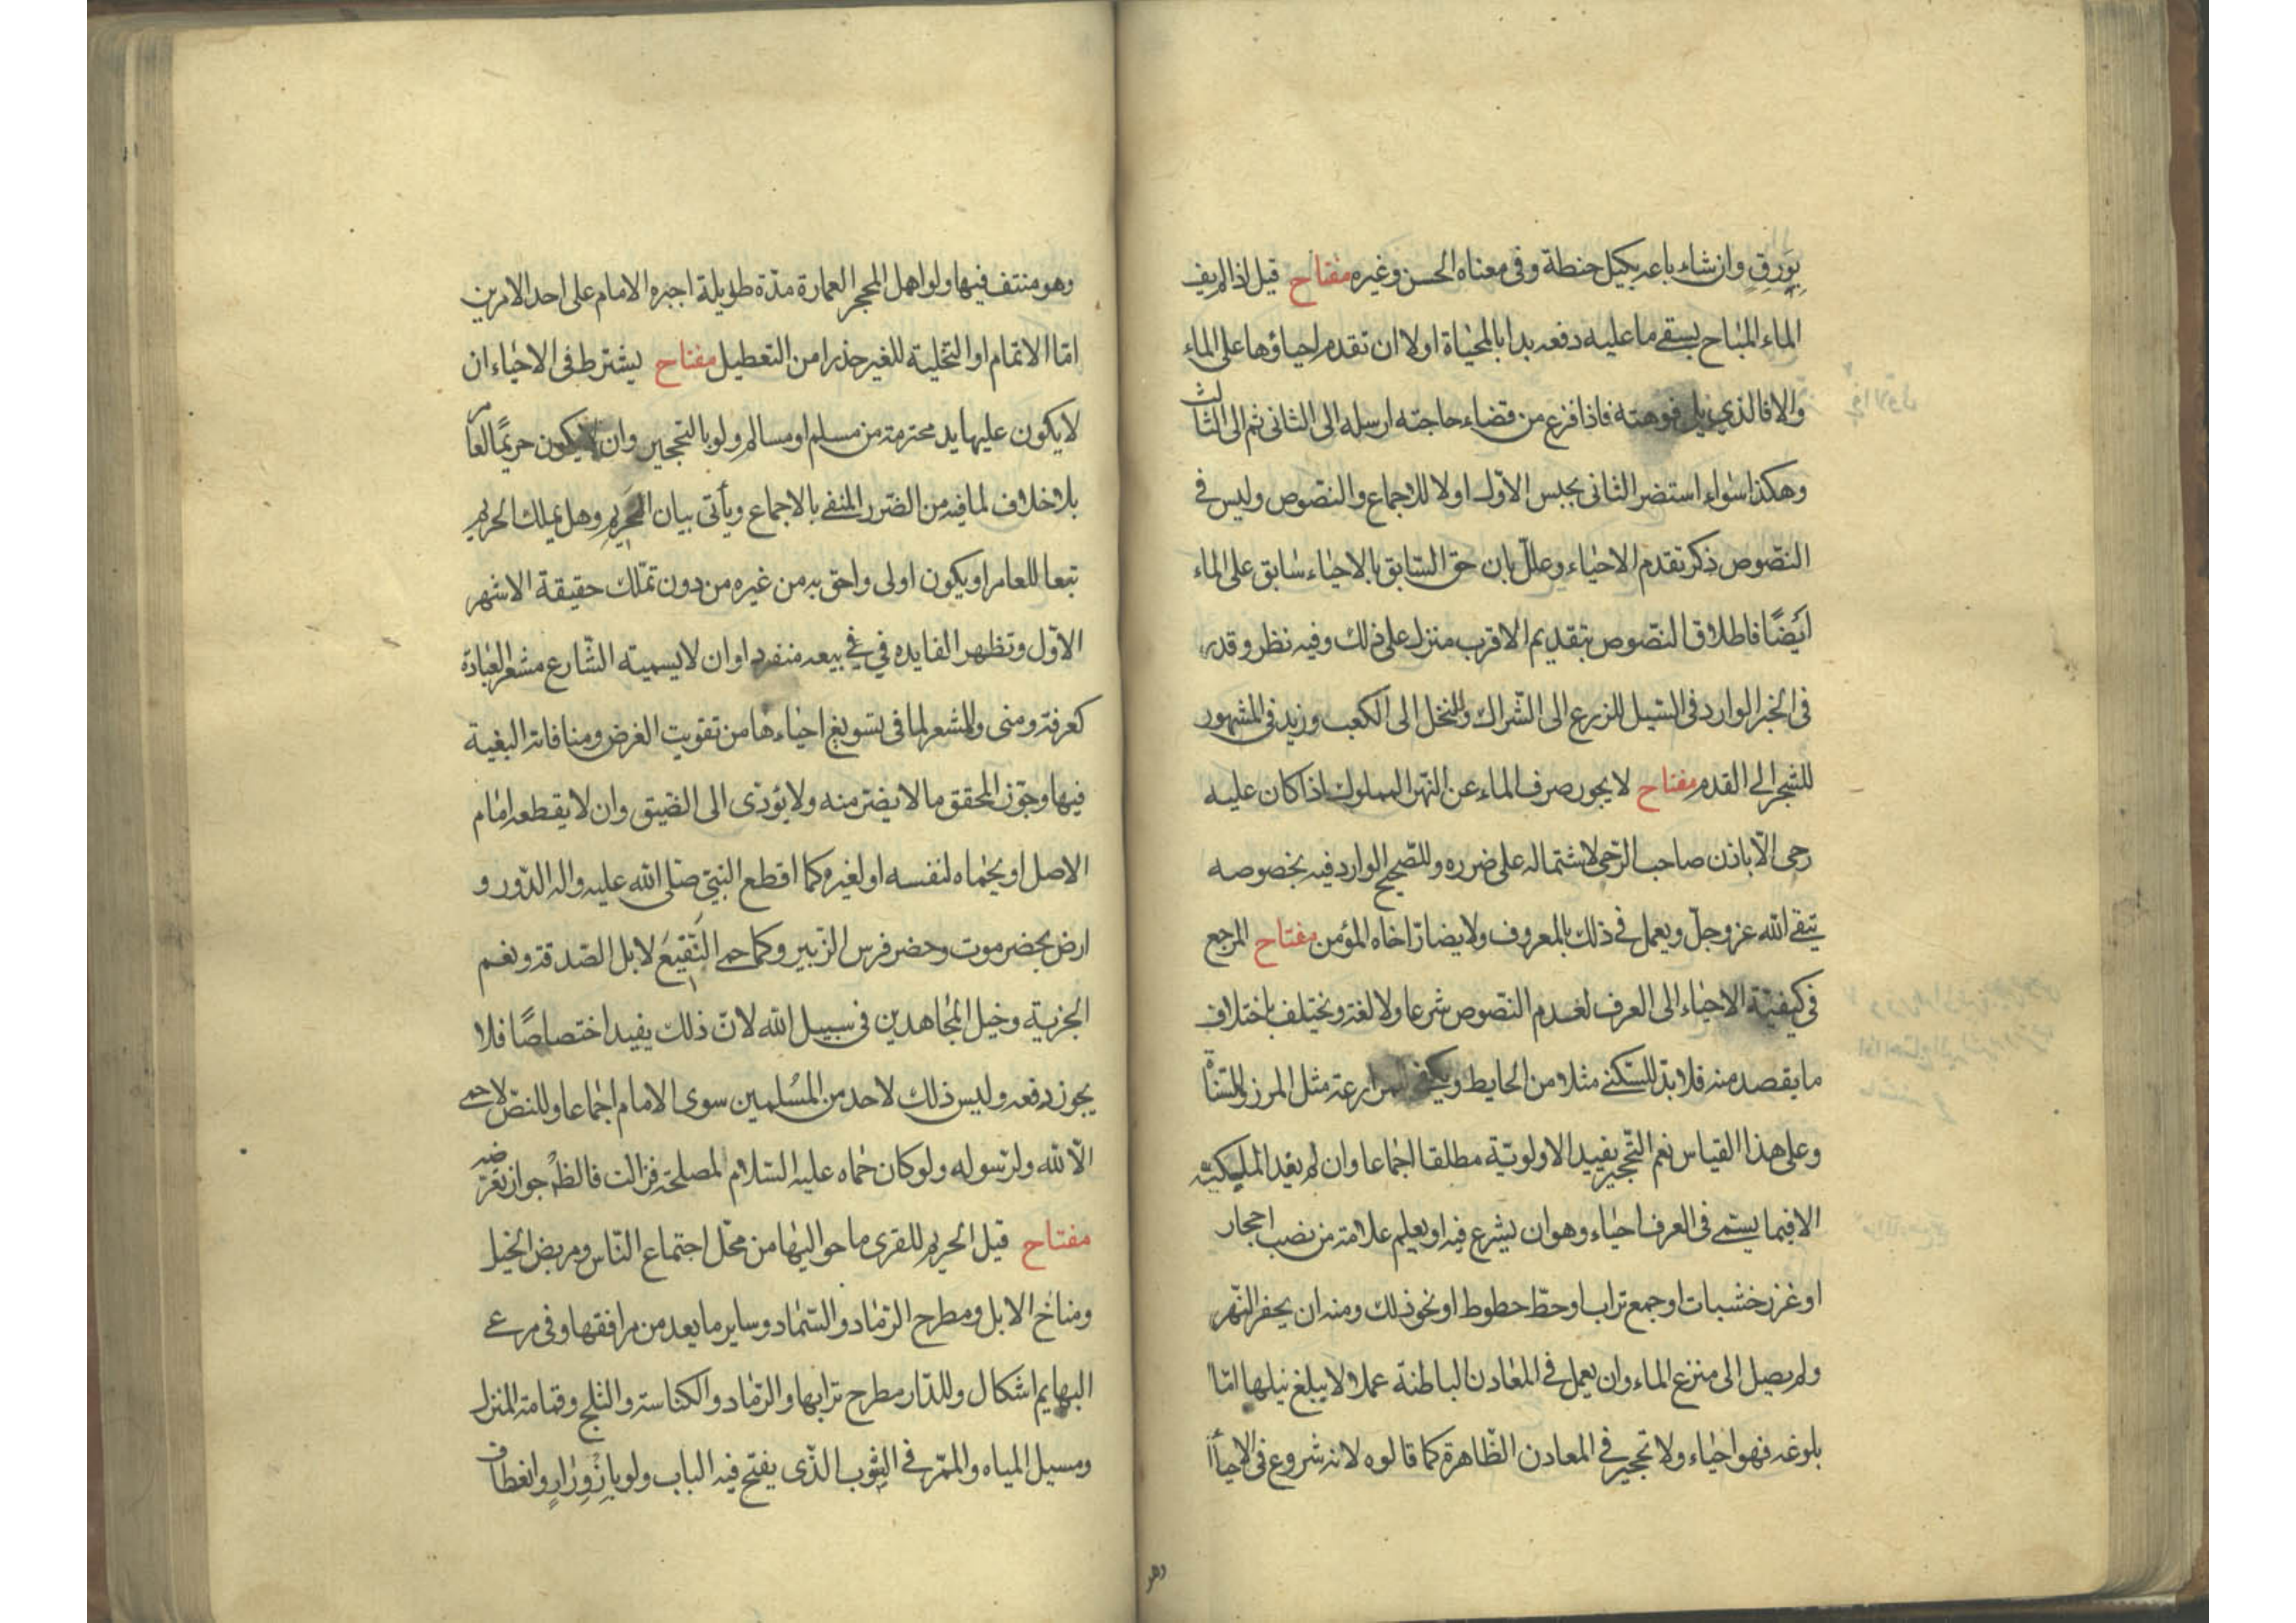 بورق وان شاء باعه بكيل حنطة وفى معناه الحسن وغيره مفتاح قيل اذا لم يف
الماء المباح بسقى ما عليه دفعه بدا بالمحياة اولا ان تقدم احياؤها على الماء
والا فالذى يلى فوهته فاذا فزع من قضاء حاجته ارسله الى الثانى ثم الى الثالث
وهكذا سواء استضر الثانى بحبس الاول اولا للاجماع والنصوص وليس فى
النصوص ذكر تقدم الاحياء وعلل بان حق السابق بالاحياء سابق على الماء
ايضًا فاطلاق النصوص بتقديم الاقرب منزل على ذلك وفيه نظر وقدر
فى الخبر الوارد فى السيل للزرع الى الشراك وللنخل الى الكعب وزيد فى المشهور
للشجر الى القدم مفتاح لا يجوز صرف الماء عن النهر المملوك اذا كان عليه
رحى الا باذن صاحب الرحى لاشتماله على ضرره وللصحيح الوارد فيه بخصوصه
يتقى الله عز وجل ويعمل فى ذلك بالمعروف ولا يضار اخاه المؤمن مفتاح المرجع
فى كيفية الاحياء الى العرف لعدم النصوص شرعا ولا لغة ويختلف باختلاف
ما يقصد منه فلا بد للسكنى مثلا من الحايط ويكفى للمزارعة مثل المرز والمسناة
وعلى هذا القياس نعم التحجير يفيد الاولوية مطلقا اجماعا وان لم يفد الملكية
الا فيما يسمى فى العرف احياء وهو ان يشرع فيه او يعلم علامة من نصب احجار
او غرز خشبات او جمع تراب او خط خطوط او نحو ذلك ومنه ان يحفر النهر
ولم يصل الى منزع الماء وان يعمل فى المعادن الباطنة عملا لا يبلغ نيلها اما
بلوغه فهو احياء ولا تحجير فى المعادن الظاهرة كما قالوه لانه شروع فى الاحياء
وهو
وهو منتف فيها ولو اهمل المحجر العمارة مدة طويلة اجبره الامام على احد الامرين
اما الاتمام او التخلية للغير حذرا من التعطيل مفتاح يشترط فى الاحياء ان
لا يكون عليها يد محترمة من مسلم او مسالم ولو بالتحجير وان لا يكون حريمًا لعامر
بلا خلاف لما فيه من الضرر المنفى بالاجماع ويأتى بيان الحريم وهل يملك الحريم
تبعا للعامر او يكون اولى واحق به من غيره من دون تملك حقيقة الاشهر
الاول وتظهر الفايده فى فى بيعه منفردا وان لا يسميه الشارع مشعر العبادة
كعرفة ومنى والمشعر لما فى تسويغ احياءها من تفويت الغرض ومنافاته البغية
فيها وجوز المحقق ما لا يضر منه ولا يؤدى الى الضيق وان لا يقطعه امام
الاصل او يحماه لنفسه او لغيره كما اقطع النبى صلى الله عليه واله الدور و
ارض بحضرموت وحضر فرس الزبير وكما حمى النقيع لابل الصدقة ونعم
الجزية وخيل المجاهدين فى سبيل الله لان ذلك يفيد اختصاصًا فلا
يجوز دفعه وليس ذلك لاحد من المسلمين سوى الامام اجماعا وللنص لا حمى
الا لله ولرسوله ولو كان حماه عليه السلام لمصلحة فزالت فالظ جواز نقضه
مفتاح قيل الحريم للقرى ما حواليها من محل اجتماع الناس ومربض الخيل
ومناخ الابل ومطرح الرماد والسماد وساير ما يعد من مرافقها وفى مرعى
البهايم اشكال وللدار مطرح ترابها والرماد والكناسة والثلج وقمامة المنزل
ومسيل المياه والممر فى الصوب الذى يفتح فيه الباب ولو بازورار وانعطاف